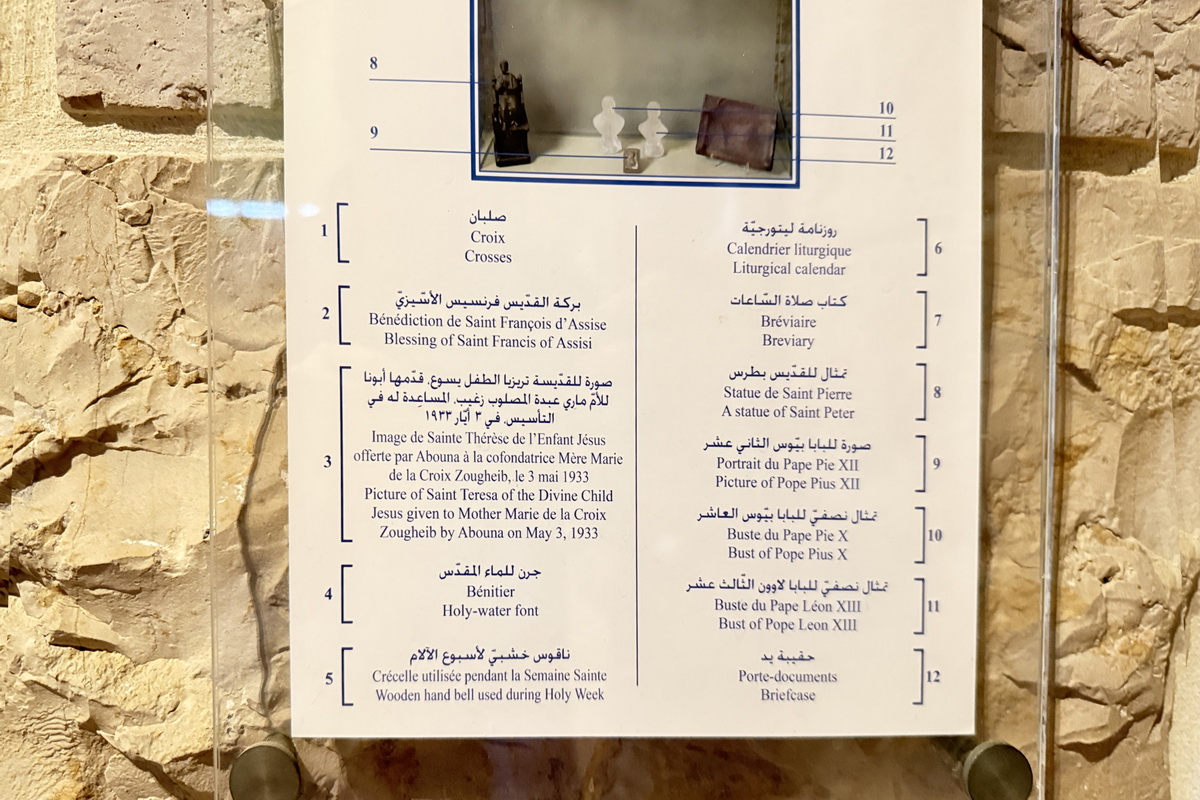 8
9
10
11
12
1
صلبان
Croix
Crosses
2
بركة القدّيس فرنسيس الأسّيزيّ
Bénédiction de Saint François d’Assise
Blessing of Saint Francis of Assisi
3
صورة للقدّيسة تريزيا الطفل يسوع، قدّمها أبونا
للأمّ ماري عبدة المصلوب زغيب، المساعِدة له في
التأسيس، في ٣ أيّار ١٩٣٣
Image de Sainte Thérèse de l’Enfant Jésus
offerte par Abouna à la cofondatrice Mère Marie
de la Croix Zougheib, le 3 mai 1933
Picture of Saint Teresa of the Divine Child
Jesus given to Mother Marie de la Croix
Zougheib by Abouna on May 3, 1933
4
جرن للماء المقدّس
Bénitier
Holy-water font
5
ناقوس خشبيّ لأسبوع الآلام
Crécelle utilisée pendant la Semaine Sainte
Wooden hand bell used during Holy Week
روزنامة ليتورجيّة
Calendrier liturgique
Liturgical calendar
6
كتاب صلاة السّاعات
Bréviaire
Breviary
7
تمثال للقدّيس بطرس
Statue de Saint Pierre
A statue of Saint Peter
8
صورة للبابا بيّوس الثاني عشر
Portrait du Pape Pie XII
Picture of Pope Pius XII
9
تمثال نصفيّ للبابا بيّوس العاشر
Buste du Pape Pie X
Bust of Pope Pius X
10
تمثال نصفيّ للبابا لاوون الثّالث عشر
Buste du Pape Léon XIII
Bust of Pope Leon XIII
11
حقيبة يد
Porte-documents
Briefcase
12